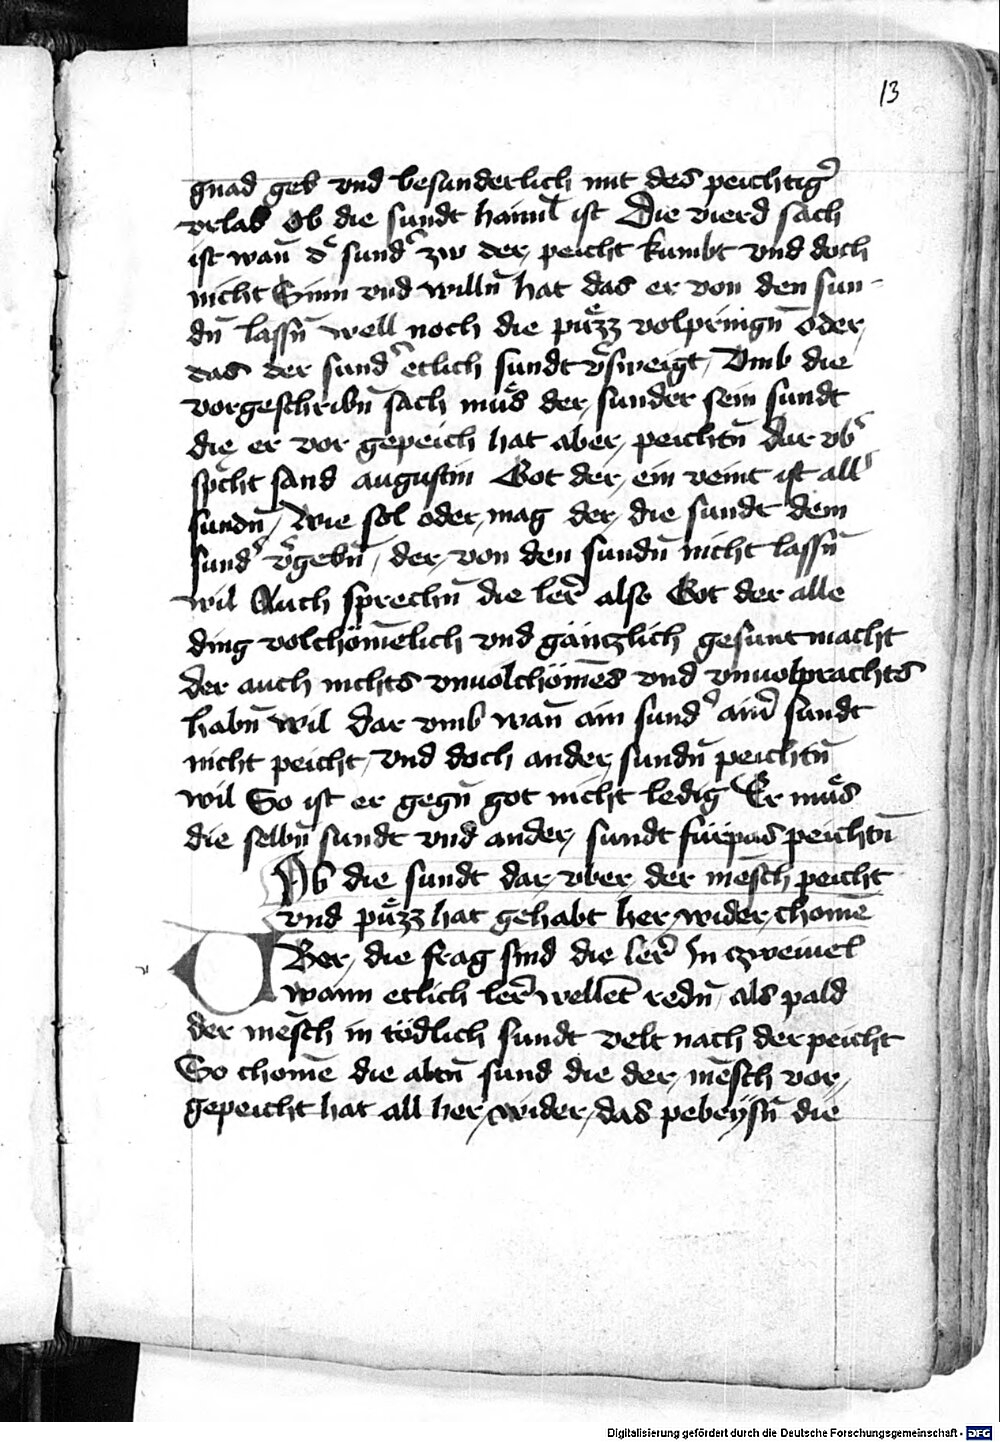 13
gnad geb vnd besunderlich mit des peichtig̉
vrlab Ob die sundt haiml̄ ist Die vierd sach
ist wan̄ d̉ sund̉ zw der peicht kumbt vnd doch
nicht Sinn vnd willn̄ hat das er von den sun-
dn̄ lassn̄ well noch die pue̊zz volpringn̄ oder
das der sund̉ etlich sundt v̉sweigt Vmb die
vorgeschribn̄ sach mue̊s der sunder sein sundt
die er vor gepeich hat aber peichtn̄ Dar vb̉
sp̄cht sand augustin Got der ein veint ist all̉
sundn̄ Wie sol oder mag der die sundt dem
sund̉ v̉gebn̄ der von den sundn̄ nicht lassn̄
wil Auch sprechn̄ die ler̉ also Got der alle
ding volchöm̄elich vnd gäntzlich gesunt macht
der auch nichts vnuolchöm̄es vnd vnuolprachts
habn̄ wil Dar vmb wan̄ ain sund̉ ain̉ sundt
nicht peicht vnd doch ander sundn̄ peichtn̄
wil So ist er gegn̄ got nicht ledig Er mue̊s
die selbn̄ sundt vnd ander sundt fürpas peichtn̄
Ob die sundt dar vber der mēsch peicht
vnd pue̊zz hat gehabt her wider chomē
UBer die frag sind die ler̉ In czweiuel
wann etlich ler̉ wellēt redn̄ als pald
der mēsch in tödlich sundt velt nach der peicht
So chomē die altn̄ sund die der mēsch vor
gepeicht hat all her wider das pebeÿsn̄ die
Digitalisierung gefördert durch die Deutsche Forschungsgemeinschaft - DFG